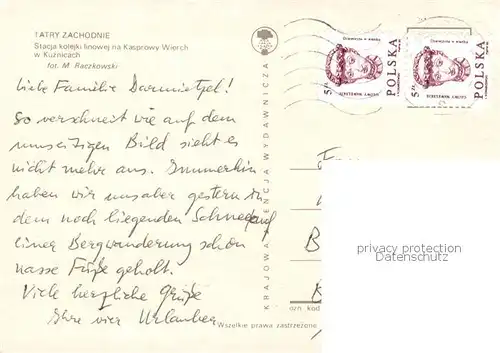 TATRY ZACHODNIE
Stacja kolejki linowej na Kasprowy Wierch
w Kuźnicach
fot. M. Raczkowski
Liebe Familie Darmietzel!
So verschneit wie auf dem
umseitigen Bild sieht es
nicht mehr aus. Immerhin
haben wir uns aber gestern in
dem noch liegenden Schnee auf
einer Bergwanderung schon
nasse Füße geholt.
Viele herzliche Grüße
Ihre vier Urlauber
Wszelkie prawa zastrzeżone
KRAJOWA AGENCJA WYDAWNICZA
5 zł
POLSKA
GŁOWY WAWELSKIE
5 zł
POLSKA
GŁOWY WAWELSKIE
privacy protection
Darmwaesche.com